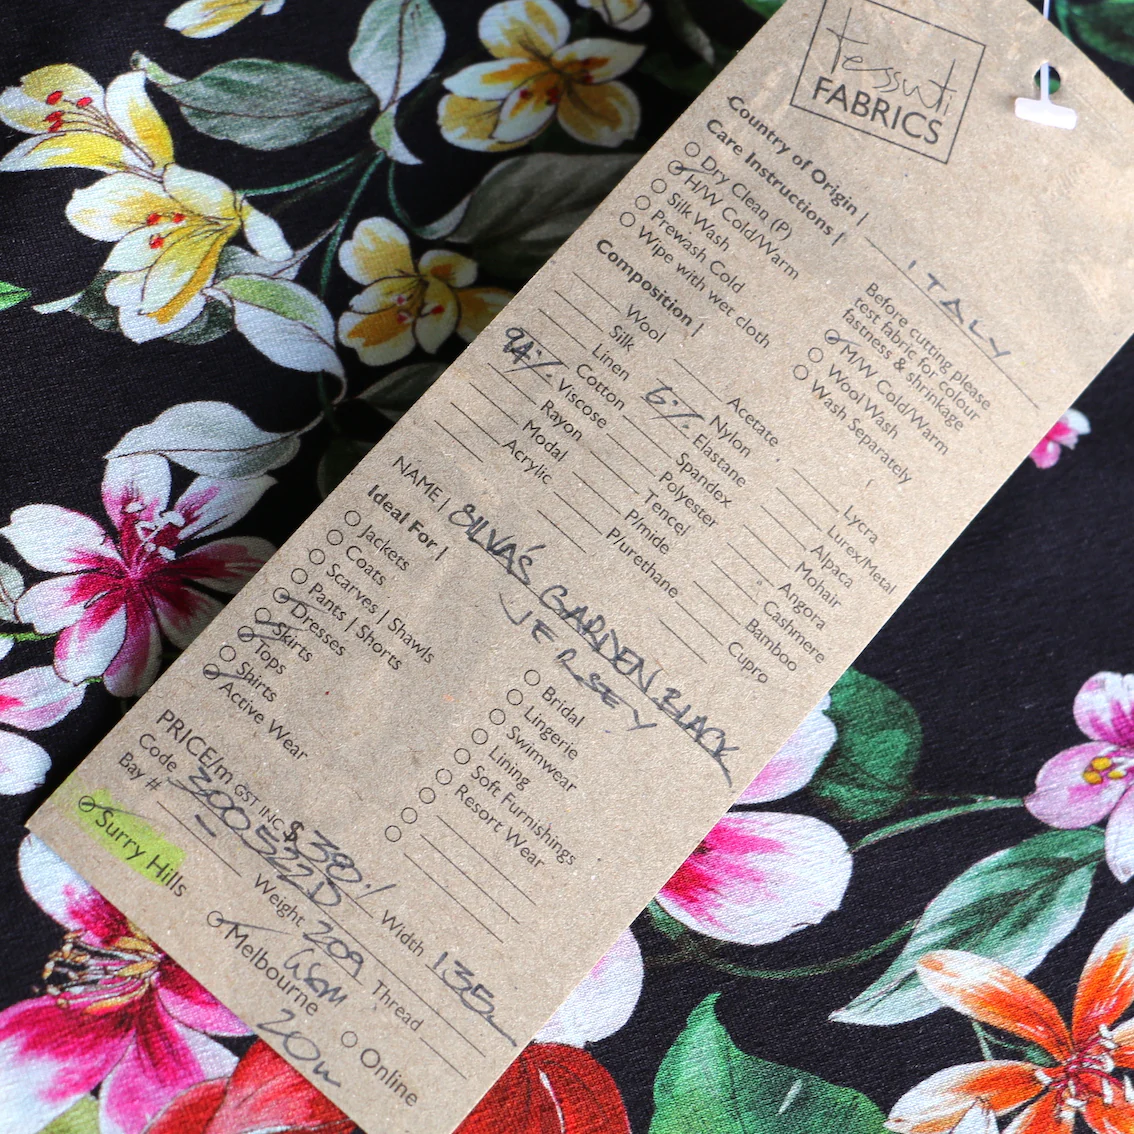 tessuti
FABRICS
Country of Origin | ITALY
Care Instructions |
Dry Clean (P)
H/W Cold/Warm
Silk Wash
Prewash Cold
Wipe with wet cloth
Before cutting please
test fabric for colour
fastness & shrinkage
M/W Cold/Warm
Wool Wash
Wash Separately
Composition |
Wool
Silk
Linen
Cotton
94% Viscose
Rayon
Modal
Acrylic
Acetate
Nylon
6% Elastane
Spandex
Polyester
Tencel
P/mide
P/urethane
Lycra
Lurex/Metal
Alpaca
Mohair
Angora
Cashmere
Bamboo
Cupro
NAME | SILVA'S GARDEN BLACK
JERSEY
Ideal For |
Jackets
Coats
Scarves | Shawls
Pants | Shorts
Dresses
Skirts
Tops
Shirts
Active Wear
Bridal
Lingerie
Swimwear
Lining
Soft Furnishings
Resort Wear
PRICE/m GST INC $39%
Code 300522D
Bay # -
Width 135cm
Weight 209
GSM
Thread
Surry Hills
Melbourne
Online
20m